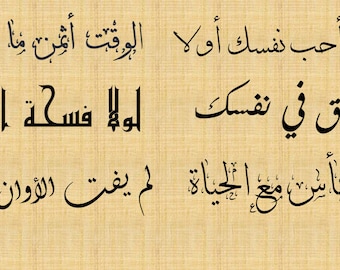 أحب نفسك أولا
الوقت أثمن ما
في نفسك
لولا فسحة
مع الحياة
لم يفت الأوان